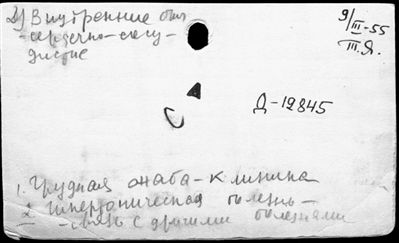 2) Внутренние бол.
-сердечно-сосу-
дистые
9/III-55
III.Я.
Д-19845
1. Грудная жаба-клиника
2. Гипертоническая болезнь-
-связь с другими болезнями